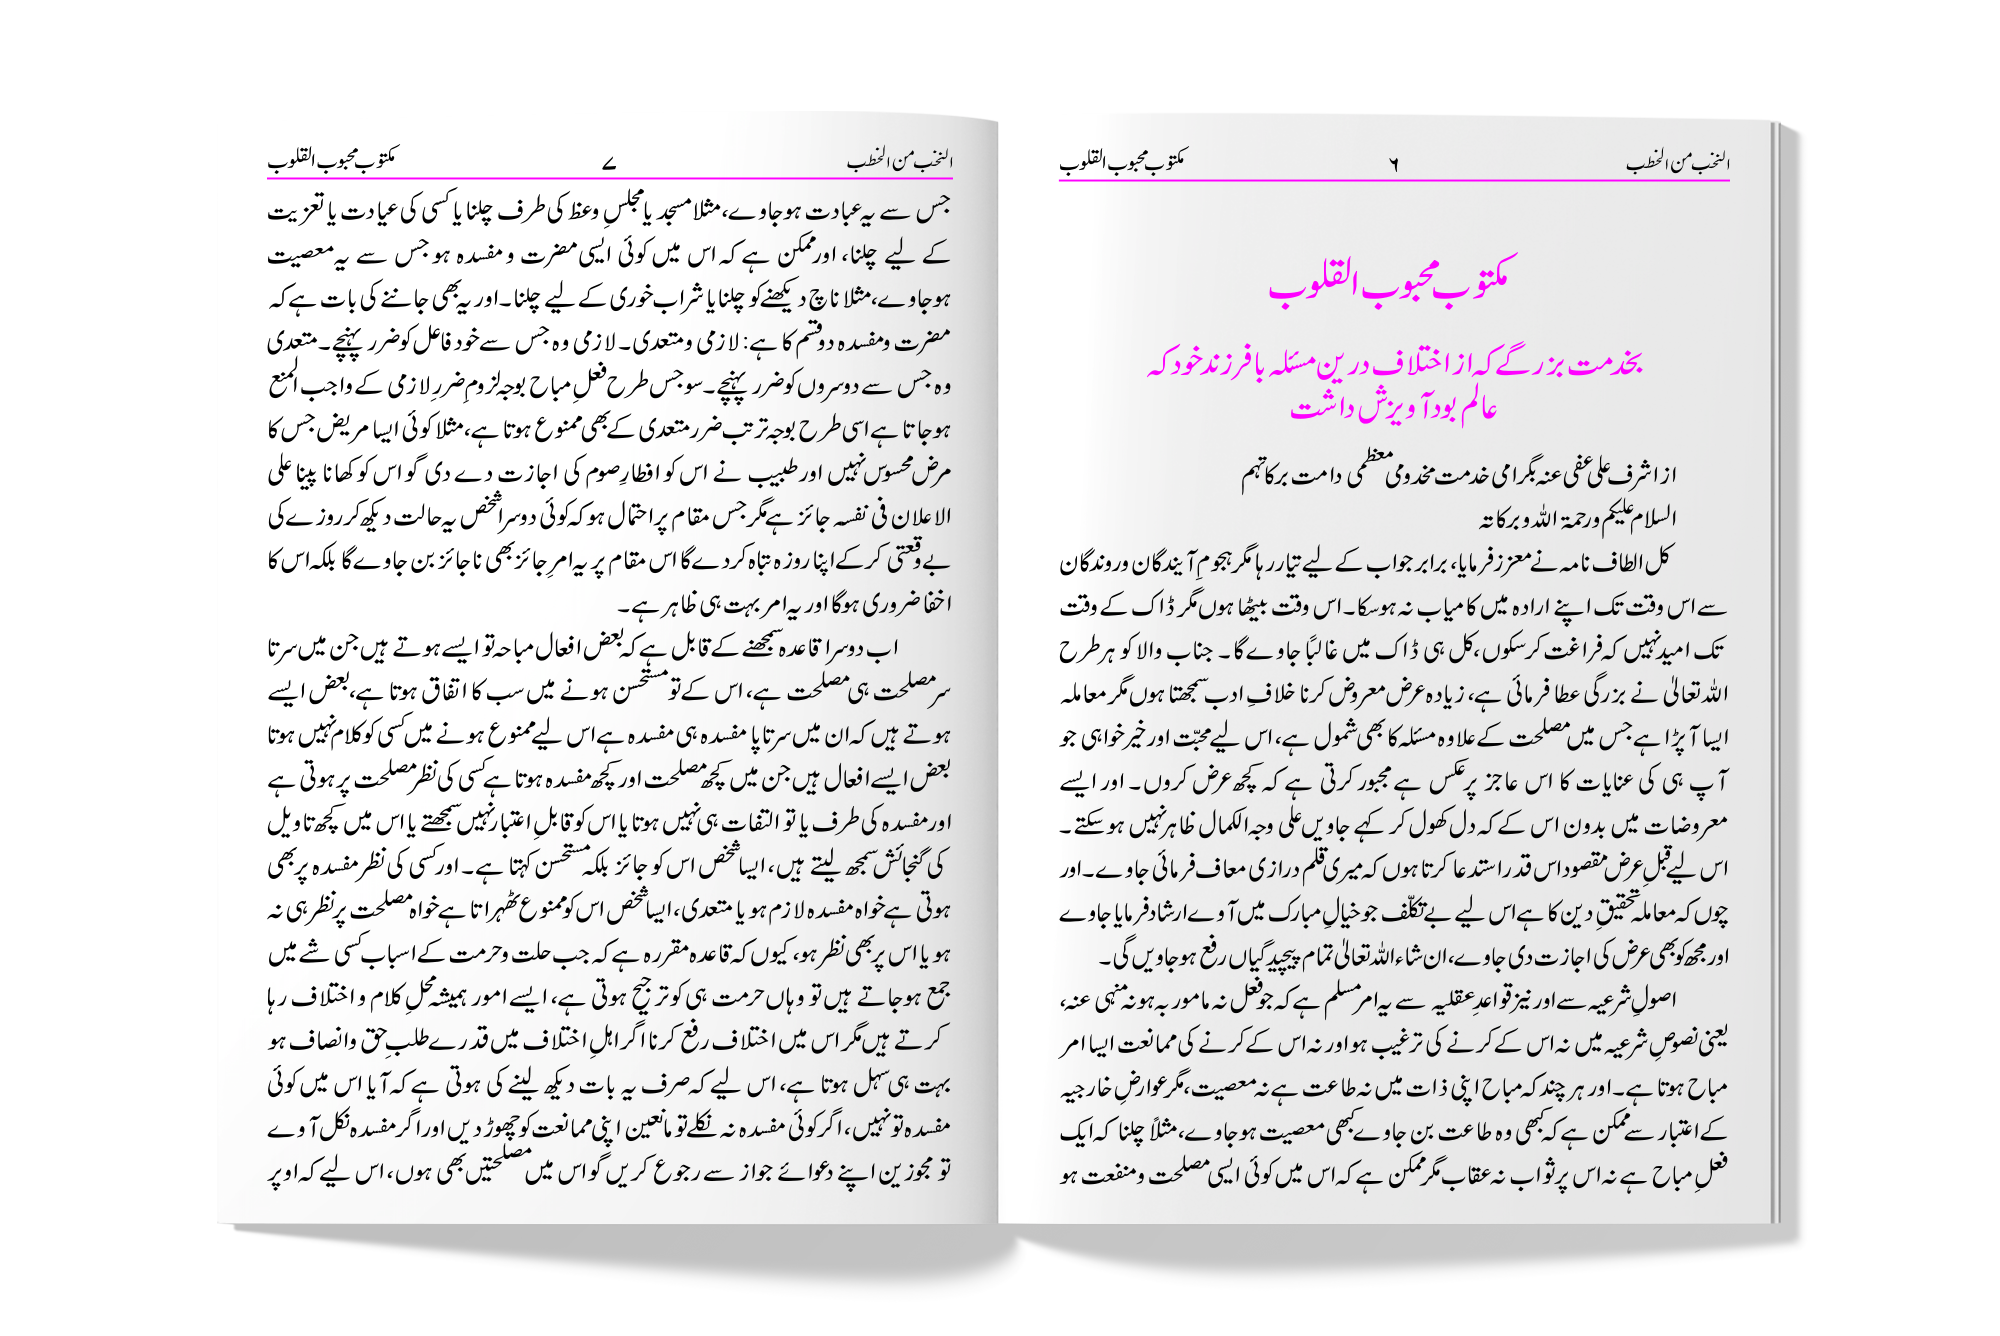 النخب من الخطب ۶ مکتوب محبوب القلوب
مکتوب محبوب القلوب
بخدمت بزرگے کہ از اختلاف درین مسئلہ با فرزند خود کہ
عالم بود آویزش داشت
از اشرف علی عفی عنہ بگرامی خدمت مخدومی معظمی دامت برکاتہم
السلام علیکم ورحمۃ اللہ و برکاتہ
کل الطاف نامہ نے معزز فرمایا، برابر جواب کے لیے تیار رہا مگر ہجومِ آیندگان وروندگان
سے اس وقت تک اپنے ارادہ میں کامیاب نہ ہوسکا۔ اس وقت بیٹھا ہوں مگر ڈاک کے وقت
تک امید نہیں کہ فراغت کرسکوں، کل ہی ڈاک میں غالباً جاوے گا۔ جناب والا کو ہر طرح
اللہ تعالیٰ نے بزرگی عطا فرمائی ہے، زیادہ عرض معروض کرنا خلافِ ادب سمجھتا ہوں مگر معاملہ
ایسا آپڑا ہے جس میں مصلحت کے علاوہ مسئلہ کا بھی شمول ہے، اس لیے محبّت اور خیر خواہی جو
آپ ہی کی عنایات کا اس عاجز پر عکس ہے مجبور کرتی ہے کہ کچھ عرض کروں۔ اور ایسے
معروضات میں بدون اس کے کہ دل کھول کر کہے جاویں علی وجہ الکمال ظاہر نہیں ہوسکتے۔
اس لیے قبلِ عرض مقصود اس قدر استدعا کرتا ہوں کہ میری قلم درازی معاف فرمائی جاوے۔ اور
چوں کہ معاملہ تحقیقِ دین کا ہے اس لیے بے تکلّف جو خیالِ مبارک میں آوے ارشاد فرمایا جاوے
اور مجھ کو بھی عرض کی اجازت دی جاوے، ان شاء اللہ تعالیٰ تمام پیچیدگیاں رفع ہوجاویں گی۔
اصولِ شرعیہ سے اور نیز قواعدِ عقلیہ سے یہ امر مسلم ہے کہ جو فعل نہ مامور بہ ہو نہ منہی عنہ،
یعنی نصوصِ شرعیہ میں نہ اس کے کرنے کی ترغیب ہو اور نہ اس کے کرنے کی ممانعت ایسا امر
مباح ہوتا ہے۔ اور ہر چند کہ مباح اپنی ذات میں نہ طاعت ہے نہ معصیت، مگر عوارضِ خارجیہ
کے اعتبار سے ممکن ہے کہ کبھی وہ طاعت بن جاوے کبھی معصیت ہوجاوے، مثلاً چلنا کہ ایک
فعلِ مباح ہے نہ اس پر ثواب نہ عقاب مگر ممکن ہے کہ اس میں کوئی ایسی مصلحت ومنفعت ہو
النخب من الخطب ۷ مکتوب محبوب القلوب
جس سے یہ عبادت ہوجاوے، مثلا مسجد یا مجلسِ وعظ کی طرف چلنا یا کسی کی عیادت یا تعزیت
کے لیے چلنا، اور ممکن ہے کہ اس میں کوئی ایسی مضرت و مفسدہ ہو جس سے یہ معصیت
ہوجاوے، مثلا ناچ دیکھنے کو چلنا یا شراب خوری کے لیے چلنا۔ اور یہ بھی جاننے کی بات ہے کہ
مضرت ومفسدہ دو قسم کا ہے: لازمی ومتعدی۔ لازمی وہ جس سے خود فاعل کو ضرر پہنچے۔ متعدی
وہ جس سے دوسروں کو ضرر پہنچے۔ سو جس طرح فعلِ مباح بوجہ لزومِ ضررِ لازمی کے واجب المنع
ہوجاتا ہے اسی طرح بوجہ ترتب ضرر متعدی کے بھی ممنوع ہوتا ہے، مثلا کوئی ایسا مریض جس کا
مرض محسوس نہیں اور طبیب نے اس کو افطارِ صوم کی اجازت دے دی گو اس کو کھانا پینا علی
الاعلان فی نفسہ جائز ہے مگر جس مقام پر احتمال ہو کہ کوئی دوسرا شخص یہ حالت دیکھ کر روزے کی
بے وقعتی کرکے اپنا روزہ تباہ کردے گا اس مقام پر یہ امرِ جائز بھی ناجائز بن جاوے گا بلکہ اس کا
اخفا ضروری ہوگا اور یہ امر بہت ہی ظاہر ہے۔
اب دوسرا قاعدہ سمجھنے کے قابل ہے کہ بعض افعال مباحہ تو ایسے ہوتے ہیں جن میں سرتا
سر مصلحت ہی مصلحت ہے، اس کے تو مستحسن ہونے میں سب کا اتفاق ہوتا ہے، بعض ایسے
ہوتے ہیں کہ ان میں سرتاپا مفسدہ ہی مفسدہ ہے اس لیے ممنوع ہونے میں کسی کو کلام نہیں ہوتا
بعض ایسے افعال ہیں جن میں کچھ مصلحت اور کچھ مفسدہ ہوتا ہے کسی کی نظر مصلحت پر ہوتی ہے
اور مفسدہ کی طرف یا تو التفات ہی نہیں ہوتا یا اس کو قابلِ اعتبار نہیں سمجھتے یا اس میں کچھ تاویل
کی گنجائش سمجھ لیتے ہیں، ایسا شخص اس کو جائز بلکہ مستحسن کہتا ہے۔ اور کسی کی نظر مفسدہ پر بھی
ہوتی ہے خواہ مفسدہ لازم ہو یا متعدی، ایسا شخص اس کو ممنوع ٹھہراتا ہے خواہ مصلحت پر نظر ہی نہ
ہو یا اس پر بھی نظر ہو، کیوں کہ قاعدہ مقررہ ہے کہ جب حلت وحرمت کے اسباب کسی شے میں
جمع ہوجاتے ہیں تو وہاں حرمت ہی کو ترجیح ہوتی ہے، ایسے امور ہمیشہ محلِ کلام و اختلاف رہا
کرتے ہیں مگر اس میں اختلاف رفع کرنا اگر اہلِ اختلاف میں قدرے طلبِ حق وانصاف ہو
بہت ہی سہل ہوتا ہے، اس لیے کہ صرف یہ بات دیکھ لینے کی ہوتی ہے کہ آیا اس میں کوئی
مفسدہ تو نہیں، اگر کوئی مفسدہ نہ نکلے تو مانعین اپنی ممانعت کو چھوڑ دیں اور اگر مفسدہ نکل آوے
تو مجوزین اپنے دعوائے جواز سے رجوع کریں گو اس میں مصلحتیں بھی ہوں، اس لیے کہ اوپر